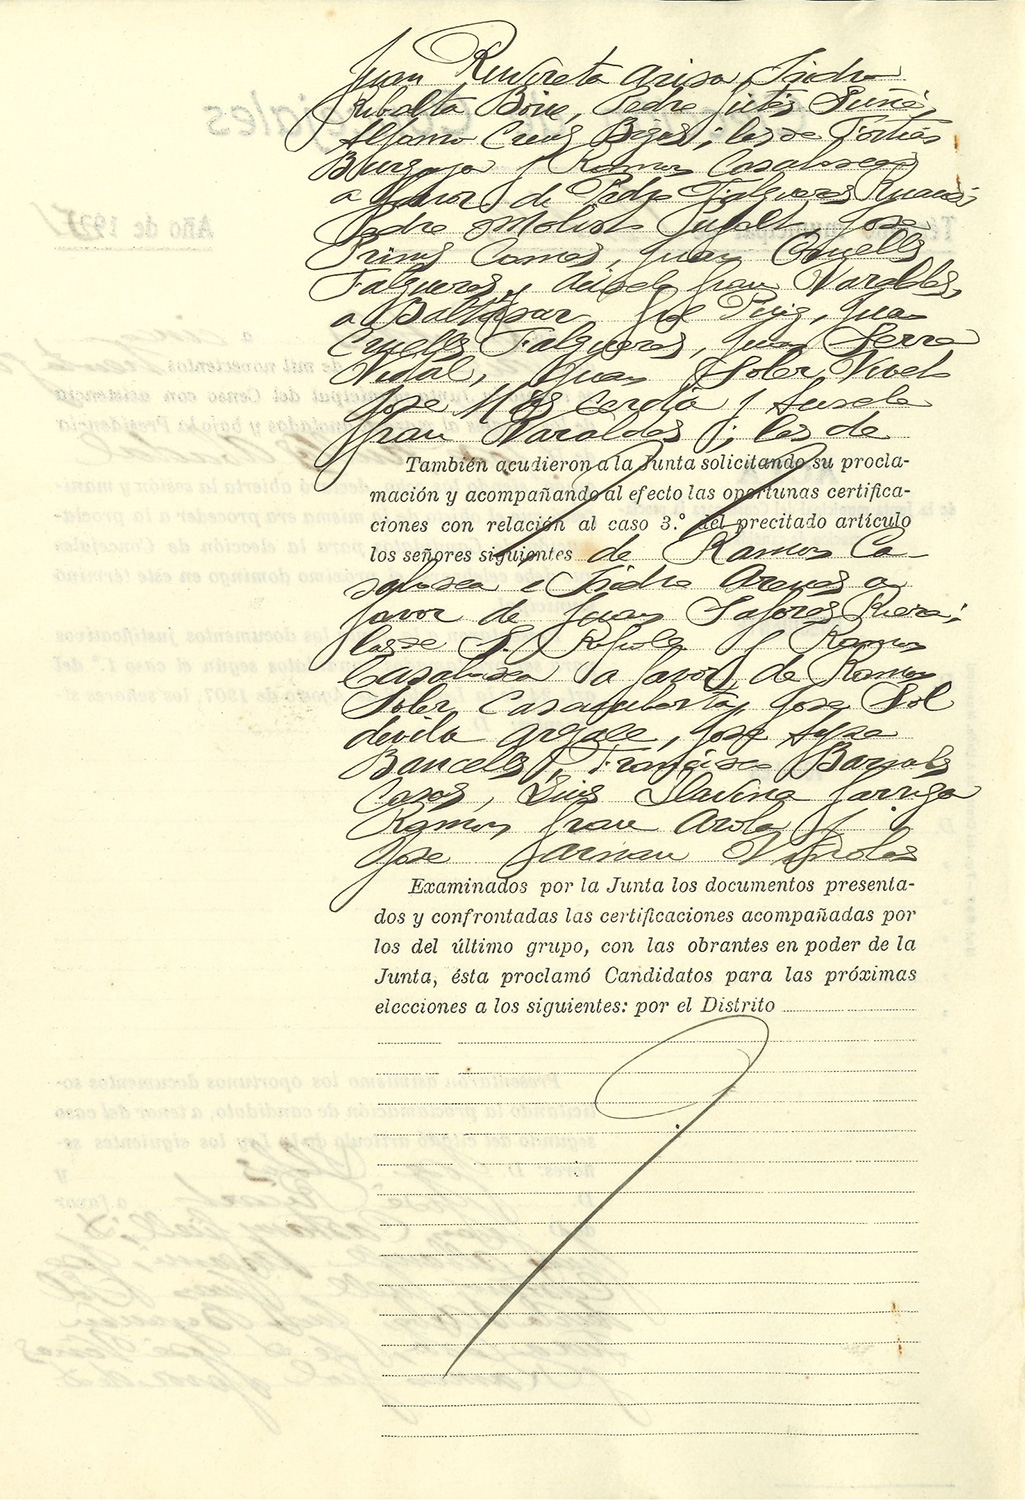 Juan Renyreta Arisa, Isidro
Ribalta Boie, Pedro Jutés Suñé,
Alfonso Creus Boges; los de Fortiás
Burgaya y Ramon Casabosega
a favor de Felipe Falgueras Ruaix,
Pedro Molist Pujalt, José
Prims Comas, Juan Cruells
Falgueras y Anselo Grau Varaldes,
a Baltasar Gol Puig, Juan
Cruells Falgueras, Juan Serra
Vidal, Juan Soler Vivet
José Mas Cerdá y Anselo
Grau Varaldes; los de
También acudieron a la Junta solicitando su procla-
mación y acompañando al efecto las oportunas certifica-
ciones con relación al caso 3.º del precitado artículo
los señores siguientes de Ramon Ca-
sabosea e Isidro Arenas a
favor de Juan Riera;
los de y Ramon
Casabosea a favor de Ramon
Soler Casacuberta, José Sol
devila José
Bancells, Francisco Barnils
Casas, Luis Llavina Garriga
Ramon Grau Arola y
José Garnau Viñolas
Examinados por la Junta los documentos presenta-
dos y confrontadas las certificaciones acompañadas por
los del último grupo, con las obrantes en poder de la
Junta, ésta proclamó Candidatos para las próximas
elecciones a los siguientes: por el Distrito